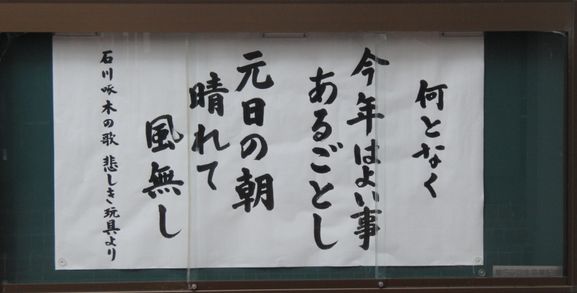 何となく
今年はよい事
あるごとし
元日の朝
晴れて
風無し
石川啄木の歌 悲しき玩具より